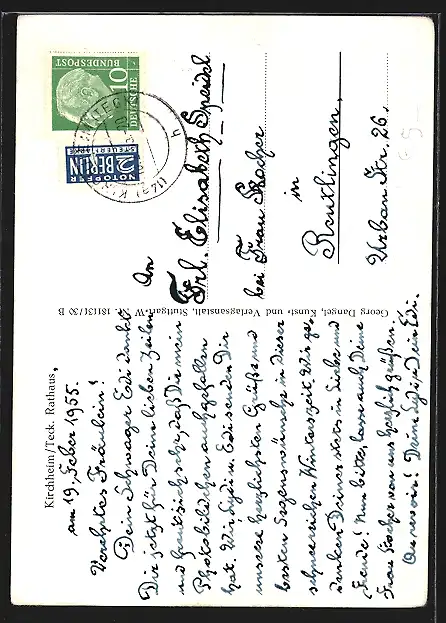 Kirchheim/Teck. Rathaus,
am 19. Feber 1955.
Verehrtes Fräulein!
Dein Schwager Edi dankt
Dir jetzt für Deine lieben Zeilen
und freut sich sehr, daß Dir mein
Photobildchen auch gefallen
hat. Wir Lydi u. Edi senden Dir
unsere herzlichsten Grüße und
besten Segenswünsche in dieser
schneereichen Winterszeit. Wir ge-
denken Deiner stets in Liebe und
Freude! Nun bitte, lasse auch Deine
Frau Kocher von uns herzlich grüßen.
Au revoir! Deine Lydi u. Dein Edi.
Georg Dangel, Kunst- und Verlagsanstalt, Stuttgart-W, Nr. 18/131/30 B
DEUTSCHE
BUNDESPOST
10
NOTOPFER
2 BERLIN
STEUERMARKE
An
Frl. Elisabeth Speidel
bei Frau Kocher
in
Reutlingen,
Urban Str. 26.